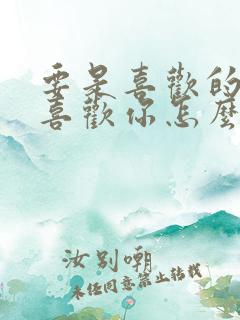 要是喜歡的
喜歡你怎麼
汝別嘲
未經同意禁止轉載